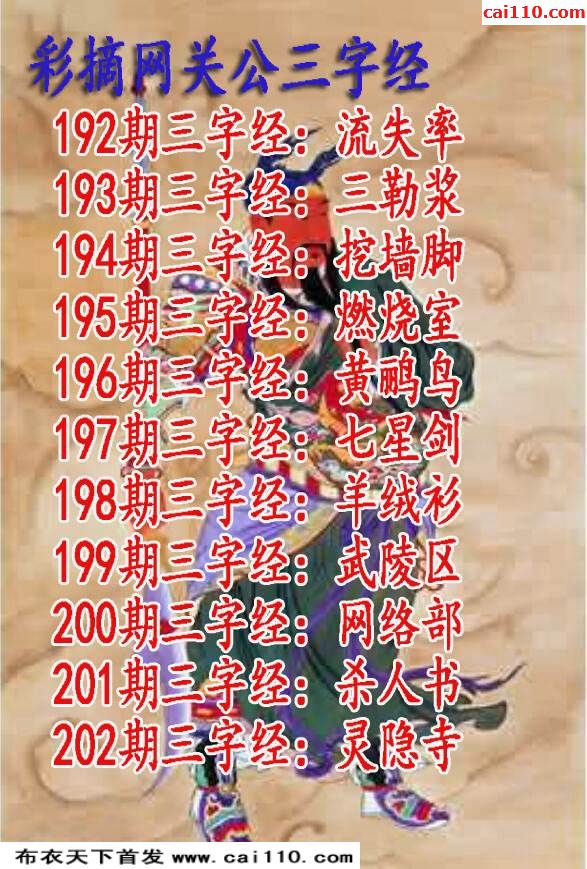 cai110.com
彩摘网关公三字经
192期三字经：流失率
193期三字经：三勒浆
194期三字经：挖墙脚
195期三字经：燃烧室
196期三字经：黄鹂鸟
197期三字经：七星剑
198期三字经：羊绒衫
199期三字经：武陵区
200期三字经：网络部
201期三字经：杀人书
202期三字经：灵隐寺
布衣天下首发 www.cai110.com